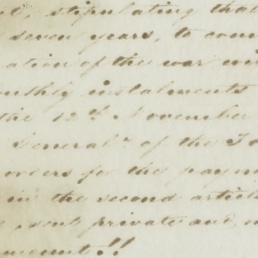 stipulating that
seven years, to com
ation of the war wi
nthly instalments
the 12th November
General of the
orders for the paym
in the second articl
sent private and
ment!!